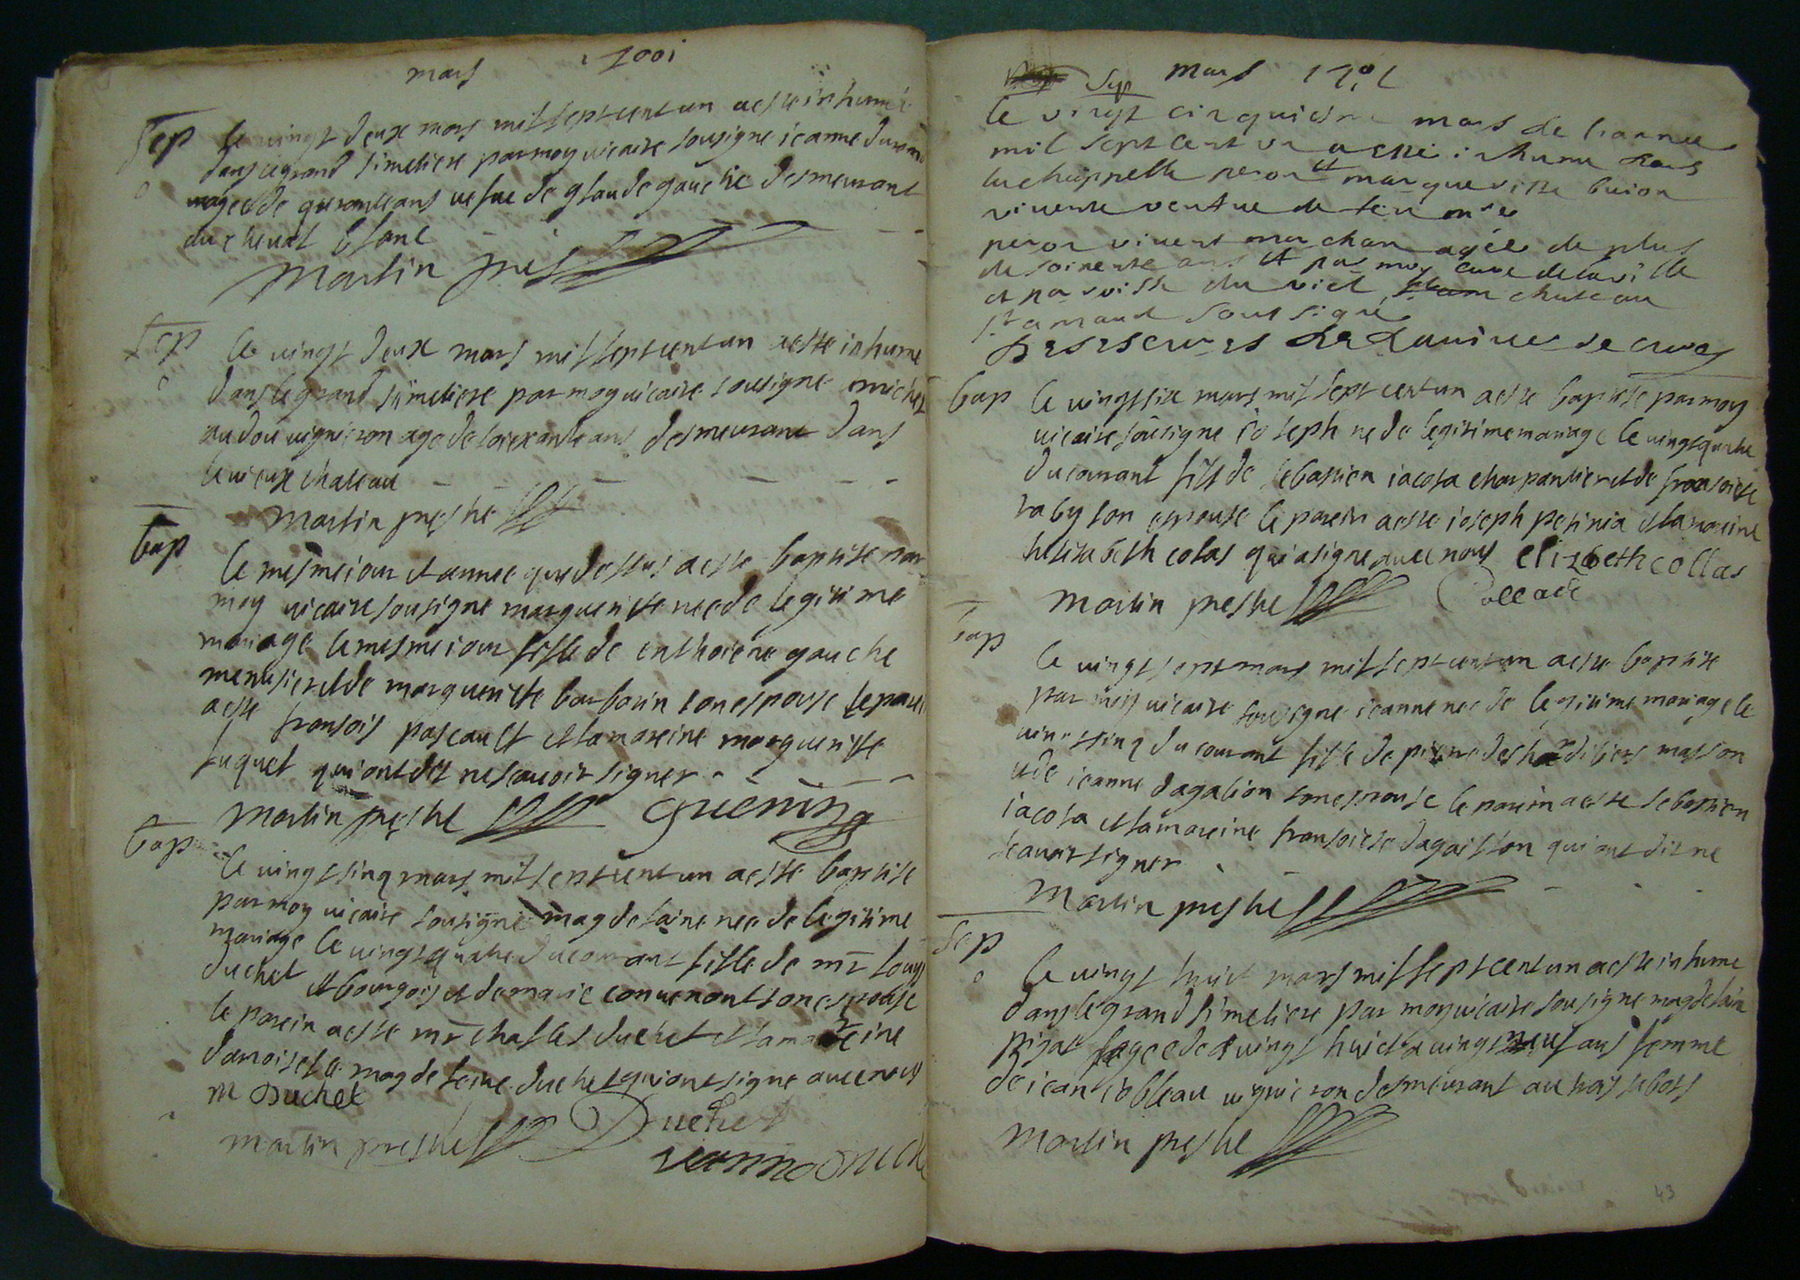 mars 1001
Sep le vingt deux mars mil sept cent un a este inhume
dans le grand simetiere par moy vicaire sousigne ieanne
aagee de quarante ans vefue de glaude gauche desmeurant
au cheval blanc
Martin pres
Sep le vingt deux mars mil sept cent un a este inhume
dans le grand simetiere par moy vicaire sousigne michel
audou vigneron age de soixante ans desmeurant dans
le vieux chateau
Martin prestre
bap le mesme iour et annee que dessus a este baptise par
moy vicaire sousigne marguerite nee de legitime
mariage le mesme iour fille de anthoiene gauche
menusier et de marguerite barbarin son espouse le parein
a este fransois pascault et la mareine marguerite
luquet qui ont dit ne scavoir signer
Martin prestre guenin
bap le vingt sinq mars mil sept cent un a este baptise
par moy vicaire sousigne magdelaine nee de legitime
mariage le vingt quatre du courant fille de mr louys
duchet et bourgois et de marie convenant son espouse
le parein a este mr charles duchet et la mareine
damoiselle magdeleine duchet qui ont signe avec nous
m Duchet
martin prestre Duchet
Sep mars 1701
le vingt cinquiesme mars de l'annee
mil sept cent un a este inhume dans
la chappelle peron marguerite buion
vivente veufve de feu
peron vivent marchan agée de plus
de soixente ans et par moy curé de la ville
et paroisse du viel chateau
st amand soussigné
bap le vingt six mars mil sept cent un a este baptise par moy
vicaire sousigne ioseph ne de legitime mariage le vingt quatre
du courant fils de sebastien iacota charpantier et de fransoise
raby son espouse le parein a este ioseph petinia et la mareine
helisabeth colas qui a signe avec nous elizbeth collas
Martin prestre
bap le vingt sept mars mil sept cent un a este baptise
par moy vicaire sousigne ieanne nee de legitime mariage le
vingt sinq du courant fille de pierre des masson
et de ieanne dagalion son espouse le parein a este sebastien
iacota et la mareine fransoise dagaillon qui ont dit ne
scavoir signer
Martin prestre
Sep le vingt huict mars mil sept cent un a este inhume
dans le grand simetiere par moy vicaire sousigne magdelaine
agee de vingt huict a vingt neuf ans femme
de iean vigneron desmeurant au
Martin prestre
43